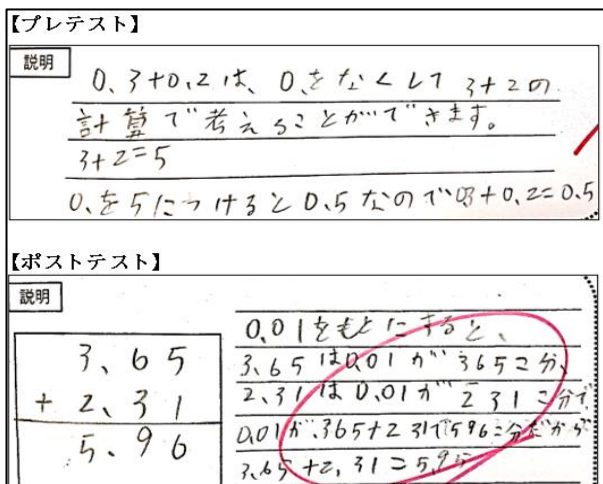 【プレテスト】
説明
0、3+0、2は、0、をなくして3+2の
計算で考えることができます。
3+2=5
0、を5につけると0、5なので0、3+0、2=0、5
【ポストテスト】
説明
3、65
+2、31
5、96
0、01をもとにすると、
3、65は0、01が365こ分、
2、31は0、01が231こ分で
0、01が、365+231で596こ分だから
3、65+2、31=5、95